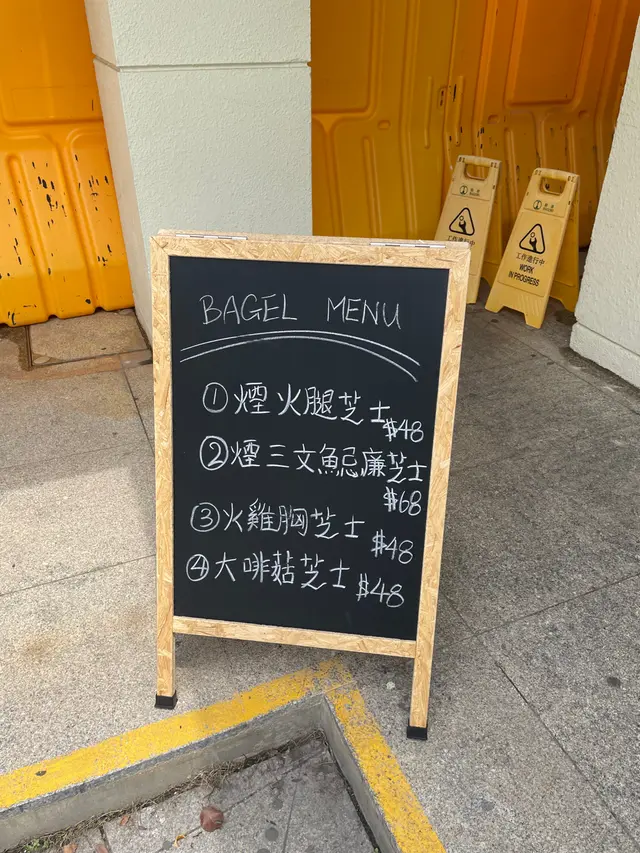 BAGEL MENU
① 煙火腿芝士 $48
② 煙三文魚忌廉芝士
$68
③ 火雞胸芝士 $48
④ 大啡菇芝士 $48
工作進行中
工作進行中
WORK
IN PROGRESS